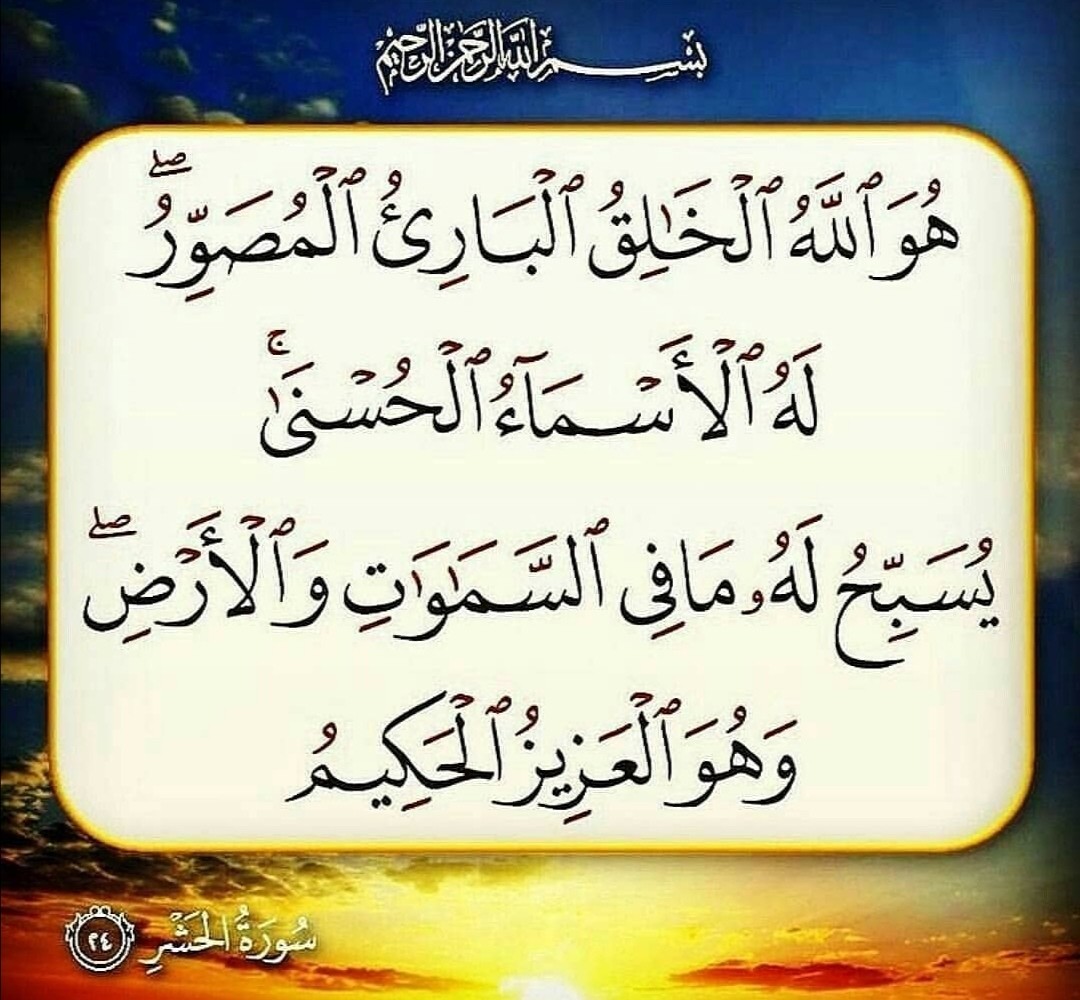 بِسْمِ اللَّهِ الرَّحْمَٰنِ الرَّحِيمِ
هُوَ ٱللَّهُ ٱلْخَٰلِقُ ٱلْبَارِئُ ٱلْمُصَوِّرُ ۖ
لَهُ ٱلْأَسْمَآءُ ٱلْحُسْنَىٰ ۚ
يُسَبِّحُ لَهُۥ مَا فِى ٱلسَّمَٰوَٰتِ وَٱلْأَرْضِ ۖ
وَهُوَ ٱلْعَزِيزُ ٱلْحَكِيمُ
سُورَةُ الحَشْرِ ٢٤